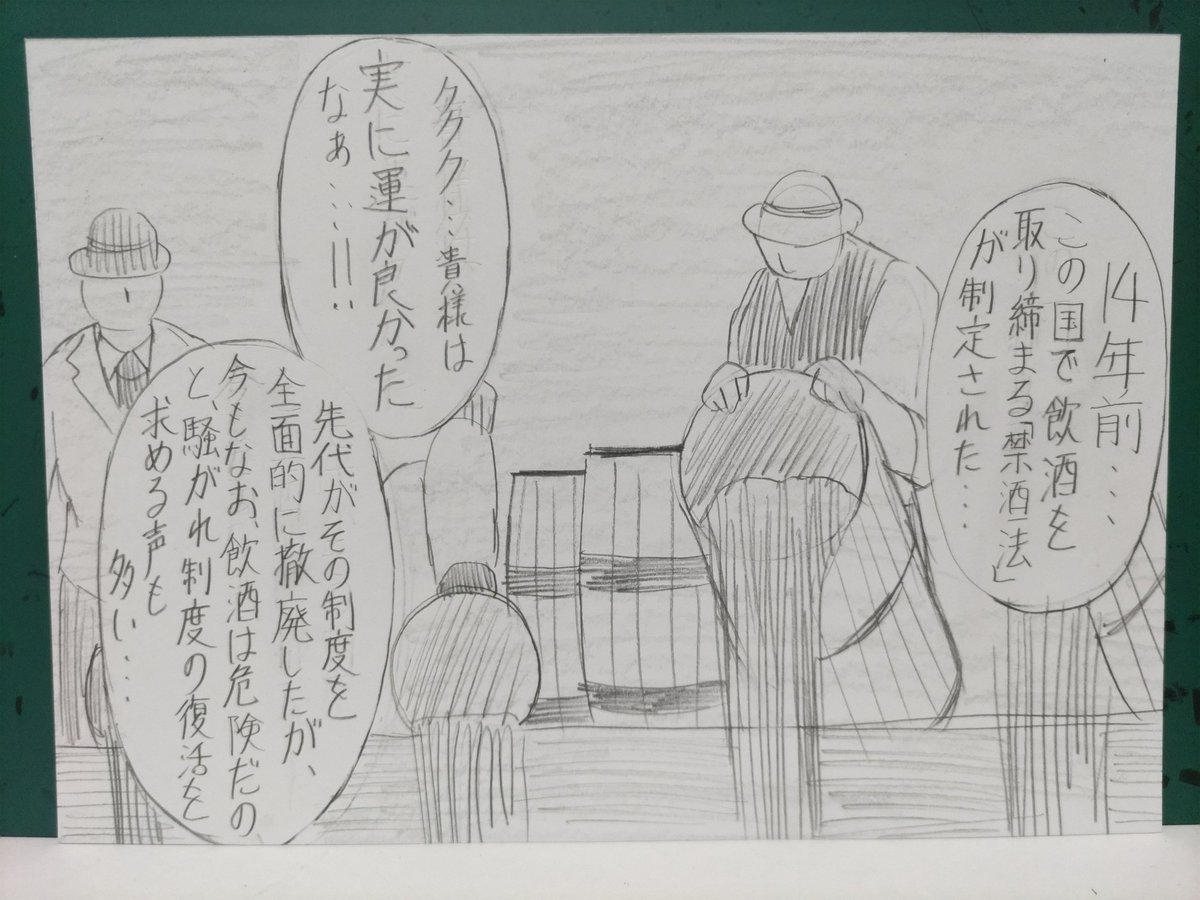 14年前・・・、
この国で飲酒を
取り締まる「禁酒法」
が制定された・・・
ククク・・・貴様は
実に運が良かった
なぁ・・・・!!
先代がその制度を
全面的に撤廃したが、
今もなお、飲酒は危険だの
と、騒がれ制度の復活を
求める声も
多い・・・・